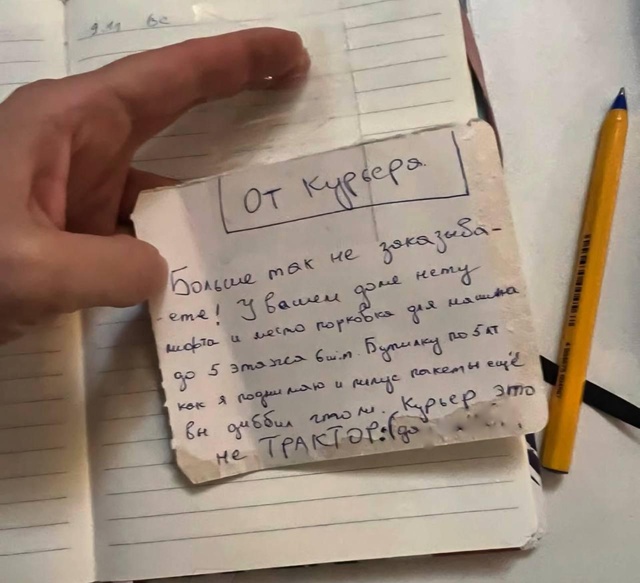 9.11 вс
От Курьера.
Больше так не заказыва-
-ете! У вашем доме нету
лифта и место порковка для машина
до 5 этажа 6шт. Бутилку по 5 лт
как я поднимаю и плюс пакеты ещё
вы диббил что ли. Курьер это
не ТРАКТОР:(до